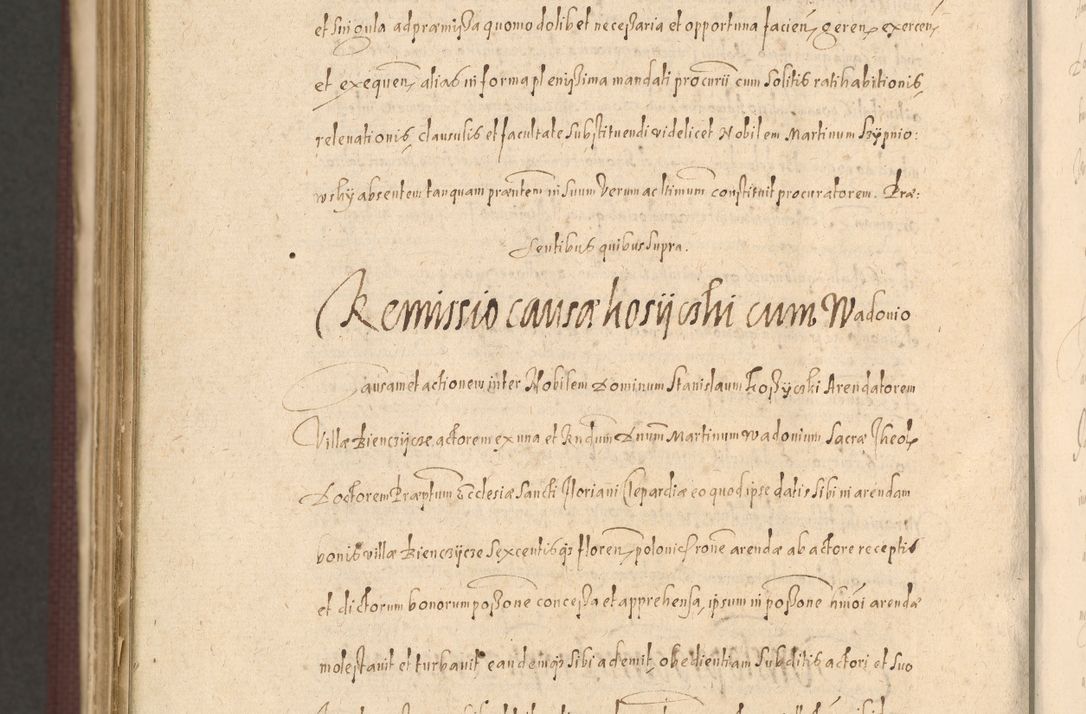 et Singula ad præmissa quomodolibet necessaria et opportuna facien, geren, exercen,
et exequen, alias in forma plenissima mandati procurii cum Solitis ratihabitionis,
relevationis, clausulis et facultate Substituendi videlicet Nobilem Martinum Szÿpnio:
wskÿ absentem tanquam præntem in Suum Verum ac ltimum constituit procuratorem. Præ:
Sentibus quibus supra.
Remissio causæ hosÿcski cum Wadovio
Causam et actionem inter Nobilem Dominum Stanislaum Hoßÿcski Arendatorem
Villæ Bienczÿcze actorem ex una et Rndum Dnum Martinum Wadovium Sacræ Theol
Doctorem Præptum Ecclesiæ Sancti Floriani Clepardiæ eo quod ipse datis Sibi in arendam
bonis villæ Bienczÿcze Sexcentisq3 floren, polonic rone arendæ ab actore receptis
et dictorum bonorum possone concessa et apprehensa, ipsum in possone hmoi arendæ
molestavit et turbavit eandemq3 Sibi ademit, obedientiam Subditis actori et Suo